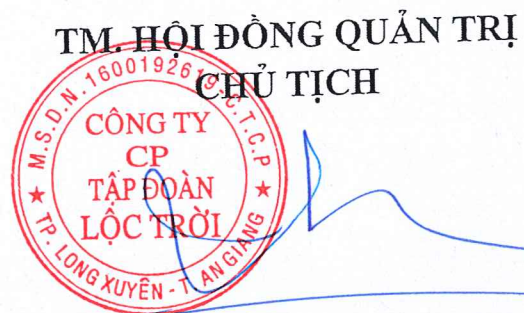 TM. HỘI ĐỒNG QUẢN TRỊ
CHỦ TỊCH
M.S.D.N. 1600192619-C.T.C.P
CÔNG TY
CP
TẬP ĐOÀN
LỘC TRỜI
TP. LONG XUYÊN - T. AN GIANG